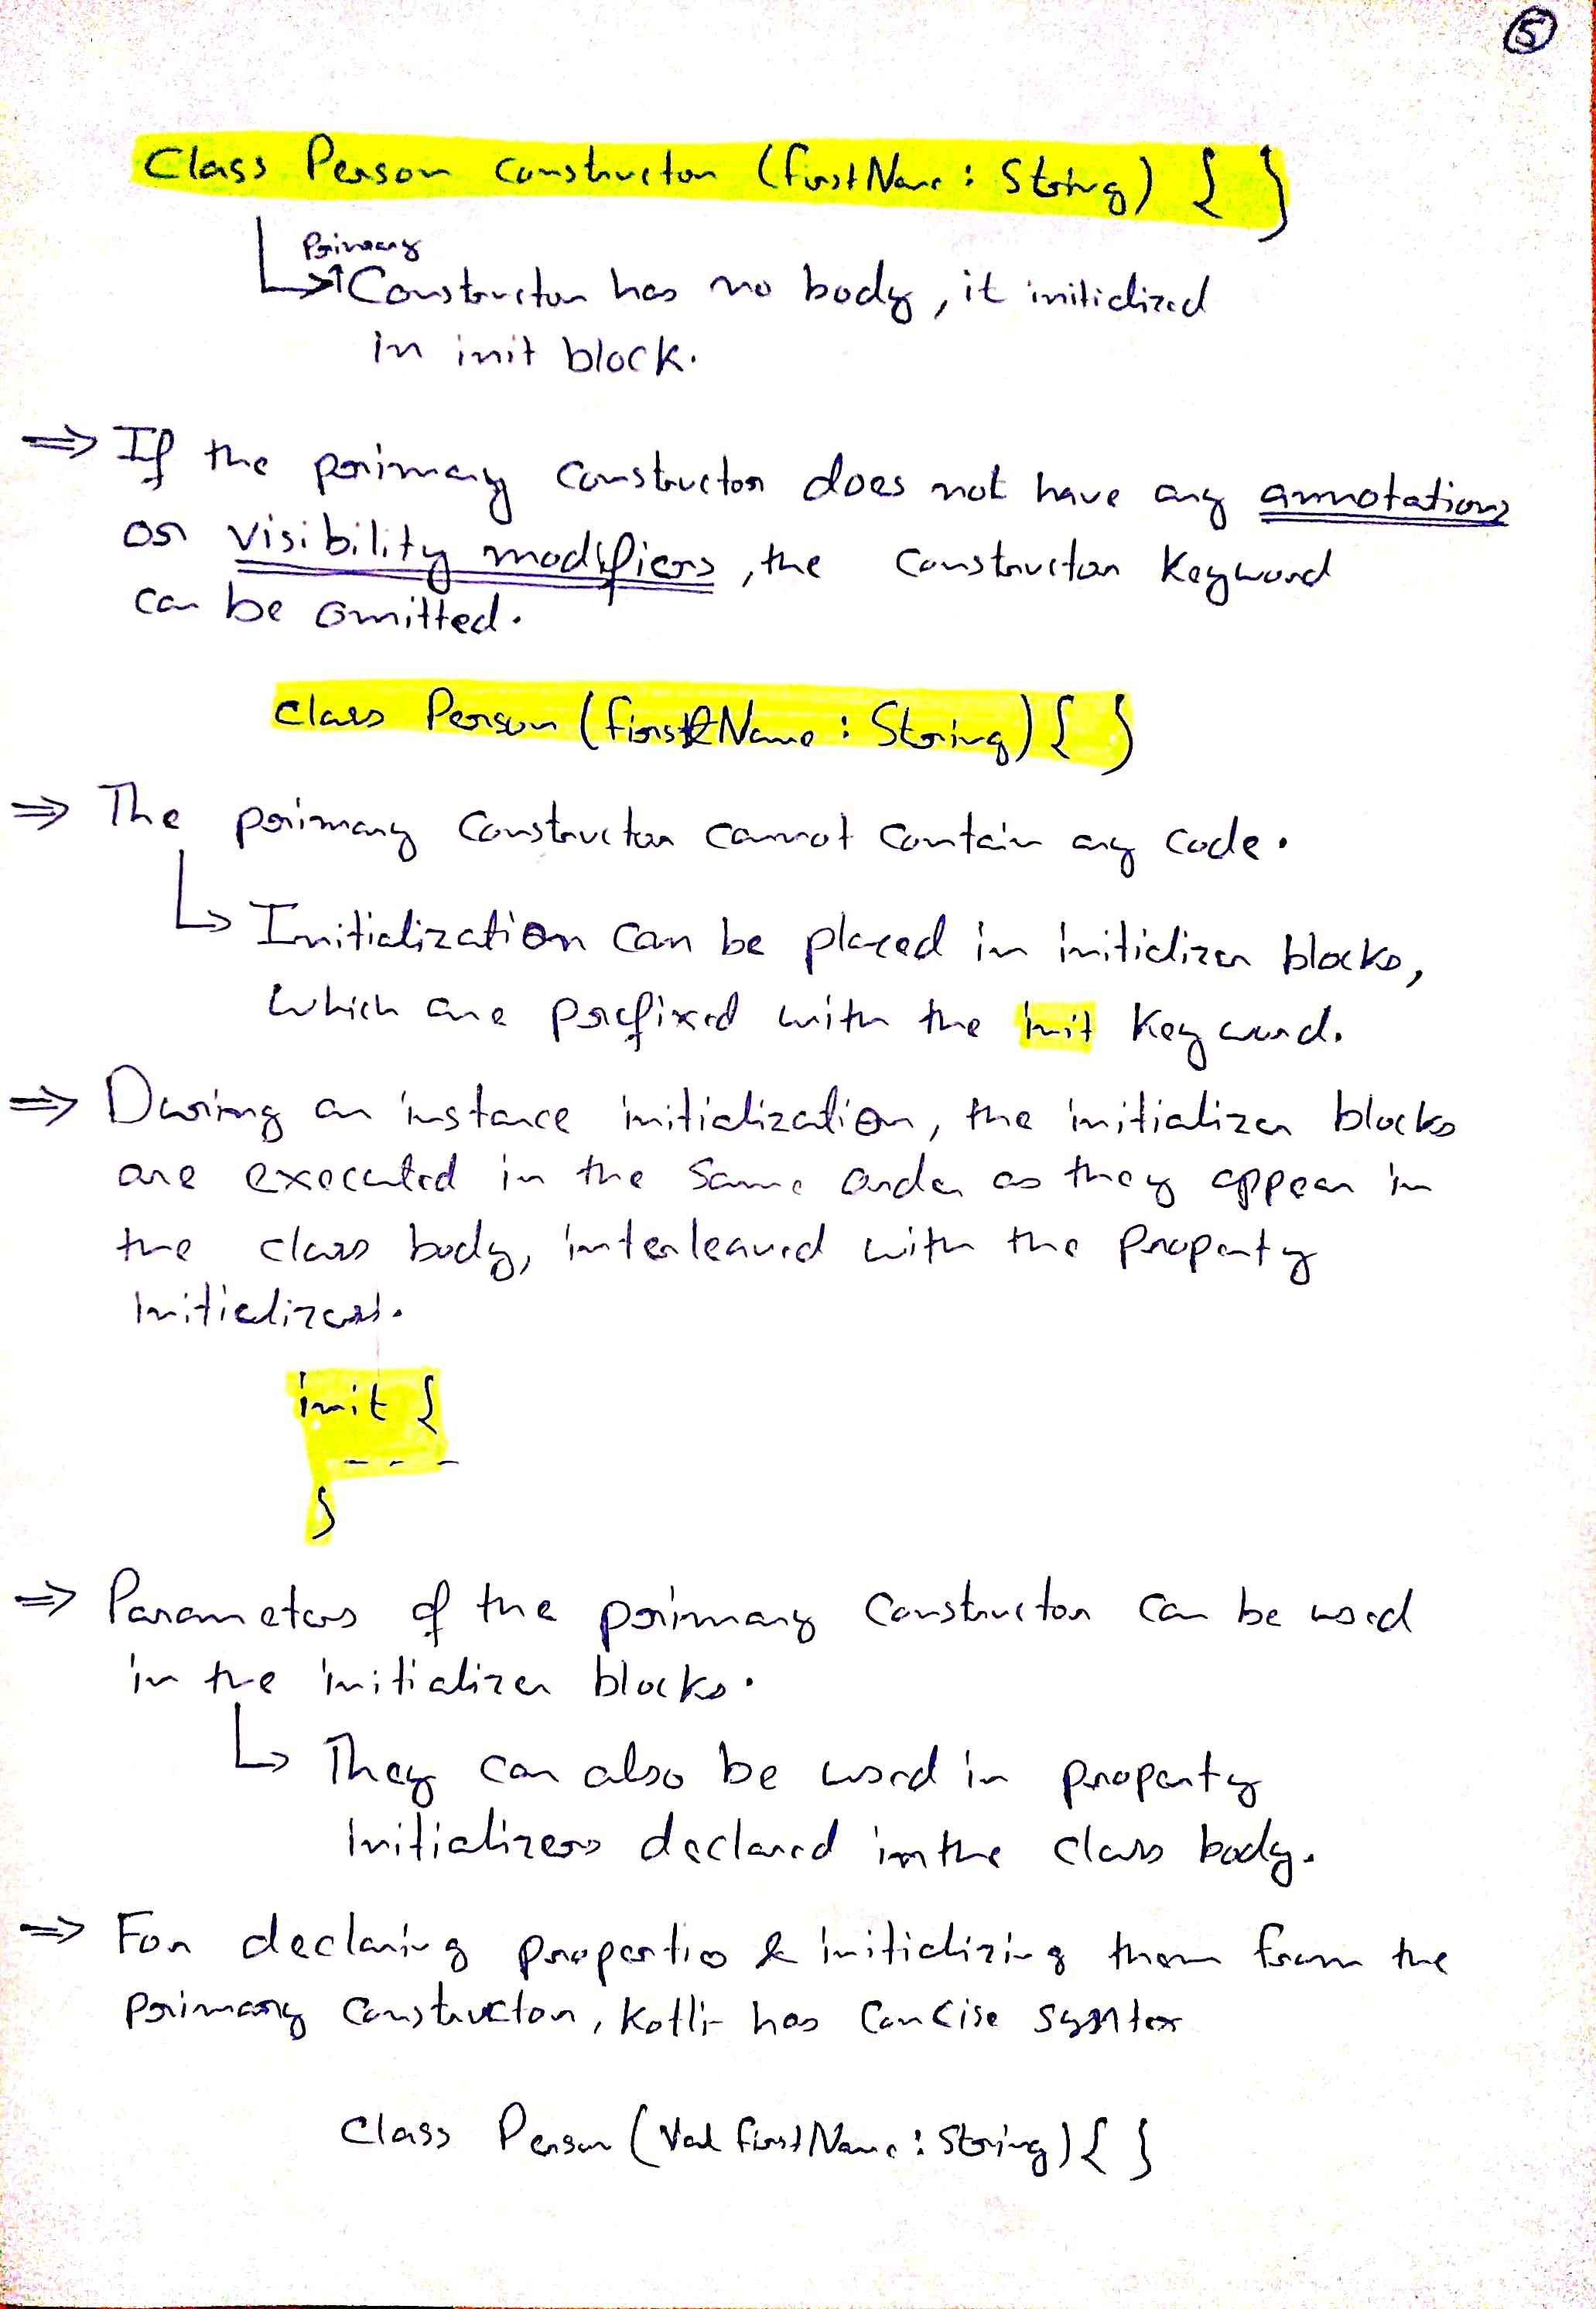 5
Class Person constructor (firstName : String) { }
Primary
Constructor has no body, it initialized
in init block.
⇒ If the primary constructor does not have any annotations
or visibility modifiers, the constructor keyword
can be omitted.
class Person (firstName : String) { }
⇒ The primary constructor cannot contain any code.
↳ Initialization can be placed in initializer blocks,
which are prefixed with the init keyword.
⇒ During an instance initialization, the initializer blocks
are executed in the same order as they appear in
the class body, interleaved with the property
initializers.
init {
- - -
}
⇒ Parameters of the primary constructor can be used
in the initializer blocks.
↳ They can also be used in property
initializers declared in the class body.
⇒ For declaring properties & initializing them from the
primary constructor, Kotlin has concise syntax
Class Person (val firstName : String) { }